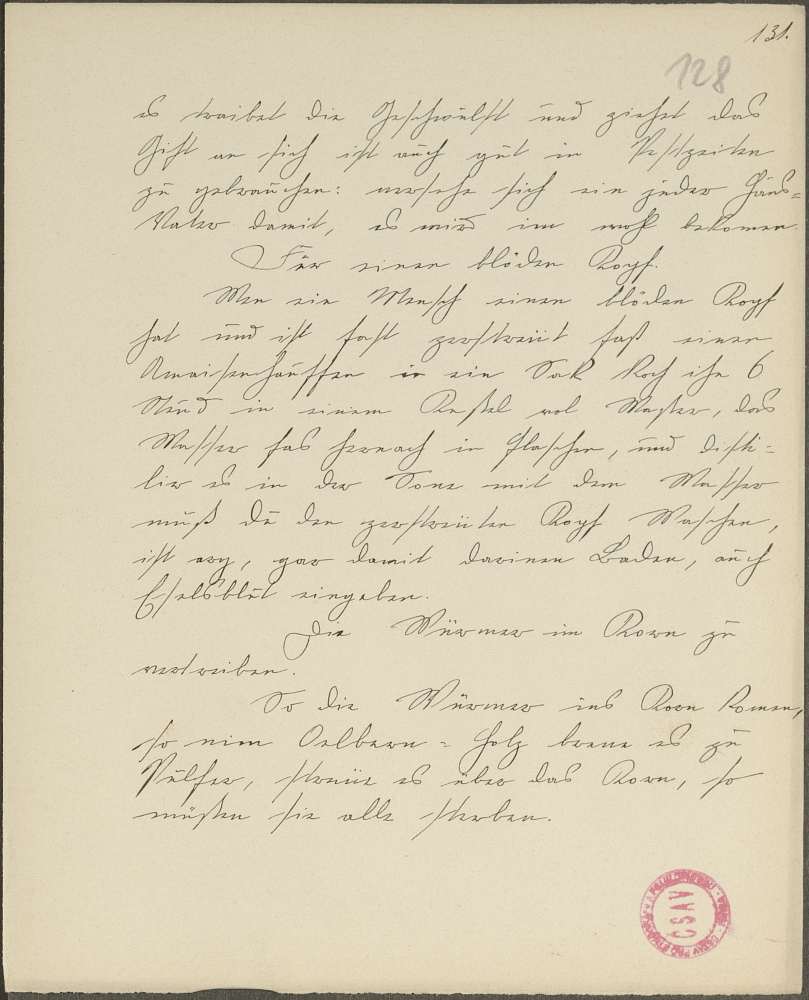 131.
128
es traibet die Geschwülst und ziehet das
Gift an sich ist auch gut in Pestzeiten
zu gebrauchen: versehe sich ein jeder Haus=
Vater damit, es wird im wohl bekomen.
Für einen blöden Kopf.
Wen ein Mensch einen blöden Kopf
hat und ist fast zerstreüt faß einen
Amaisenhauffen in ein Sak Koch ihn 6
Stund in einem Kessel vol Wasser, das
Wasser fas hernach in flaschen, und disti=
lir es in der Sone mit dem Wasser
muß du den zerstreüten Kopf Waschen,
ist arg, gar damit darinen Baden, auch
Eselsblut eingeben.
Die Würmer im Korn zu
vertreiben.
So die Würmer ins Korn Komen,
so nim Oelbern = holz brene es zu
Pulfer, streüe es über das Korn, so
müßen sie alle sterben.
ČSAV